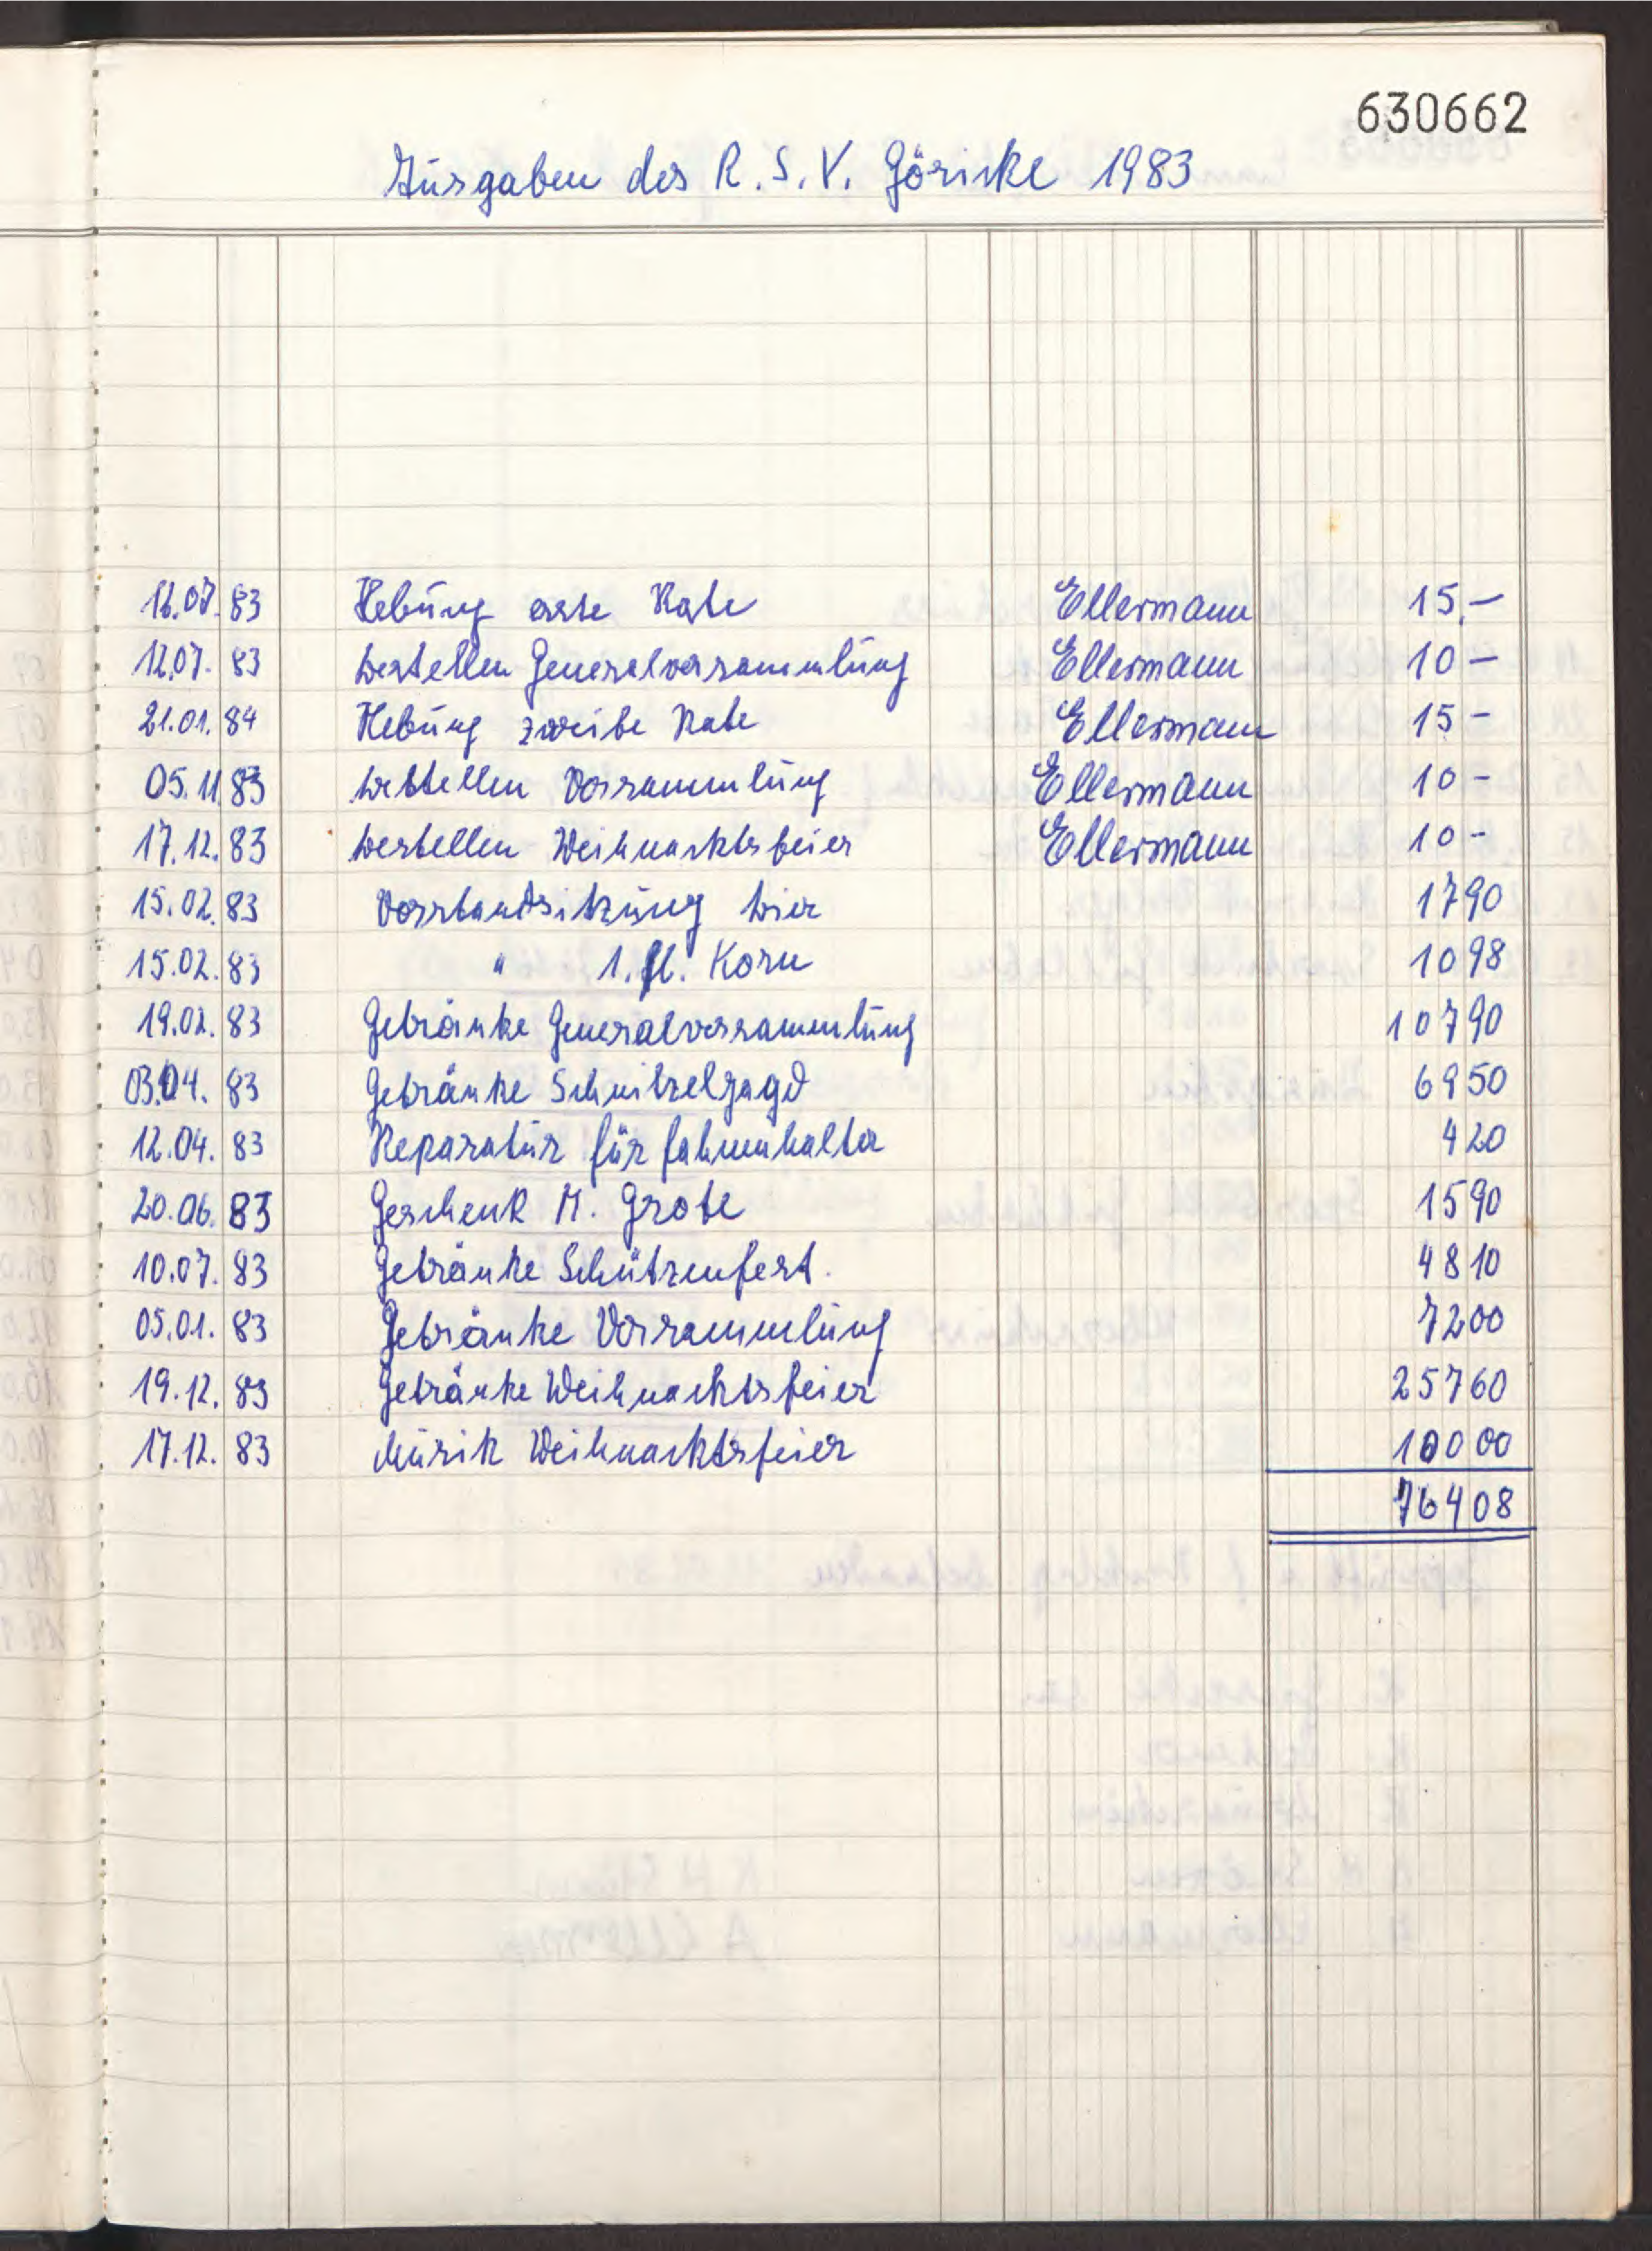 630662
Ausgaben des R.S.V. Göricke 1983
16.07.83 Hebung erste Rate Ellermann 15,—
12.07.83 bestellen Generalversammlung Ellermann 10 —
21.01.84 Hebung zweite Rate Ellermann 15 -
05.11.83 bestellen Versammlung Ellermann 10 -
17.12.83 bestellen Weihnachtsfeier Ellermann 10 -
15.02.83 Vorstandsitzung bier 17 90
15.02.83 " 1. fl. Korn 10 98
19.02.83 Getränke Generalversammlung 107 90
03.04.83 Getränke Schnitzeljagd 69 50
12.04.83 Reparatur für fahnenhalter 4 20
20.06.83 Geschenk M. Grote 15 90
10.07.83 Getränke Schützenfest. 48 10
05.01.83 Getränke Versammlung 72 00
19.12.83 Getränke Weihnachtsfeier 257 60
17.12.83 Musik Weihnachtsfeier 100 00
764 08